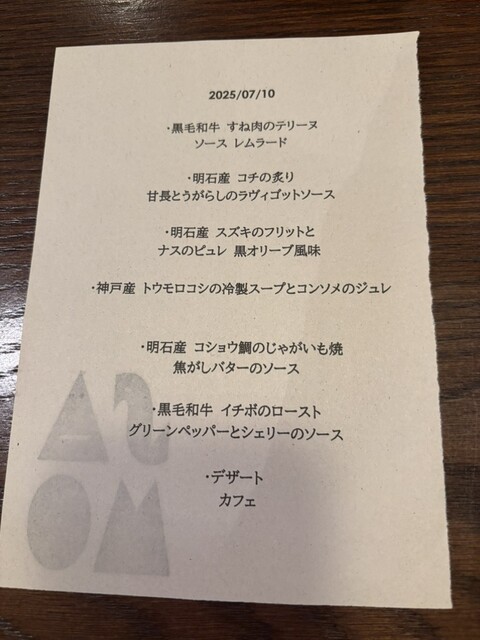 2025/07/10
・黒毛和牛 すね肉のテリーヌ
ソース レムラード
・明石産 コチの炙り
甘長とうがらしのラヴィゴットソース
・明石産 スズキのフリットと
ナスのピュレ 黒オリーブ風味
・神戸産 トウモロコシの冷製スープとコンソメのジュレ
・明石産 コショウ鯛のじゃがいも焼
焦がしバターのソース
・黒毛和牛 イチボのロースト
グリーンペッパーとシェリーのソース
・デザート
カフェ